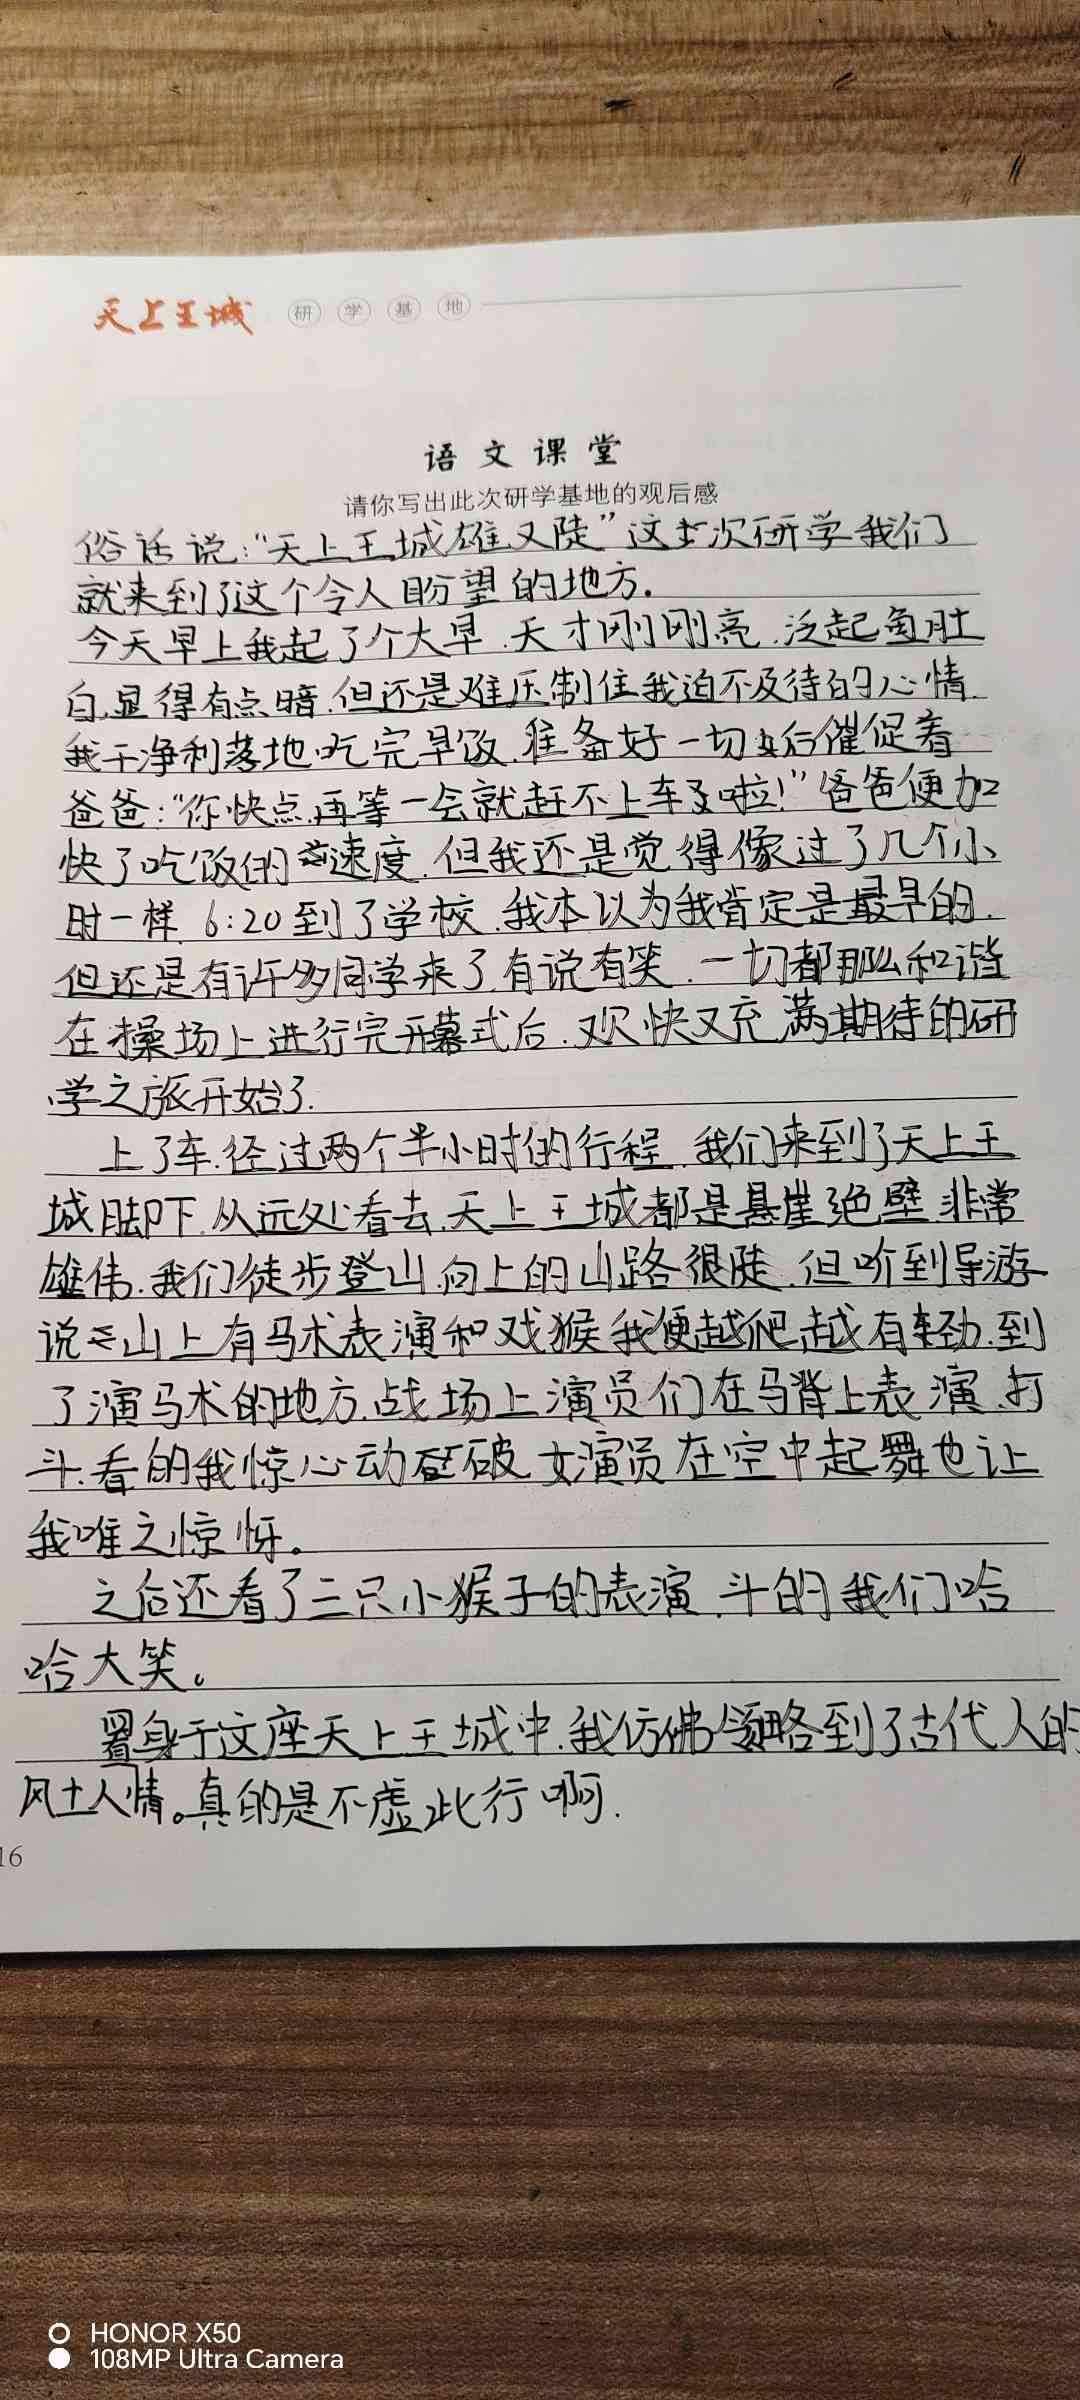 天上王城 研学基地
语文课堂
请你写出此次研学基地的观后感
俗话说:“天上王城雄又陡”这次研学我们
就来到了这个令人盼望的地方.
今天早上我起了个大早.天才刚刚亮.泛起鱼肚
白.显得有点暗.但还是难压制住我迫不及待的心情.
我干净利落地吃完早饭.准备好一切后催促着
爸爸:“你快点.再等一会就赶不上车啦!”爸爸便加
快了吃饭的速度.但我还是觉得像过了几个小
时一样.6:20到了学校.我本以为我肯定是最早的.
但还是有许多同学来了.有说有笑.一切都那么和谐
在操场上进行完开幕式后.欢快又充满期待的研
学之旅开始了.
上了车.经过两个半小时的行程.我们来到了天上王
城脚下.从远处看去.天上王城都是悬崖绝壁.非常
雄伟.我们徒步登山.向上的山路很陡.但听到导游
说山上有马术表演和戏猴我便越爬越有轻劲.到
了演马术的地方.战场上演员们在马背上表演.打
斗.看的我惊心动破.女演员在空中起舞也让
我唯之惊怀。
之后还看了三只小猴子的表演.斗的我们哈
哈大笑。
置身于这座天上王城中.我仿佛领略到了古代人的
风土人情。真的是不虚此行啊.
16
HONOR X50
108MP Ultra Camera